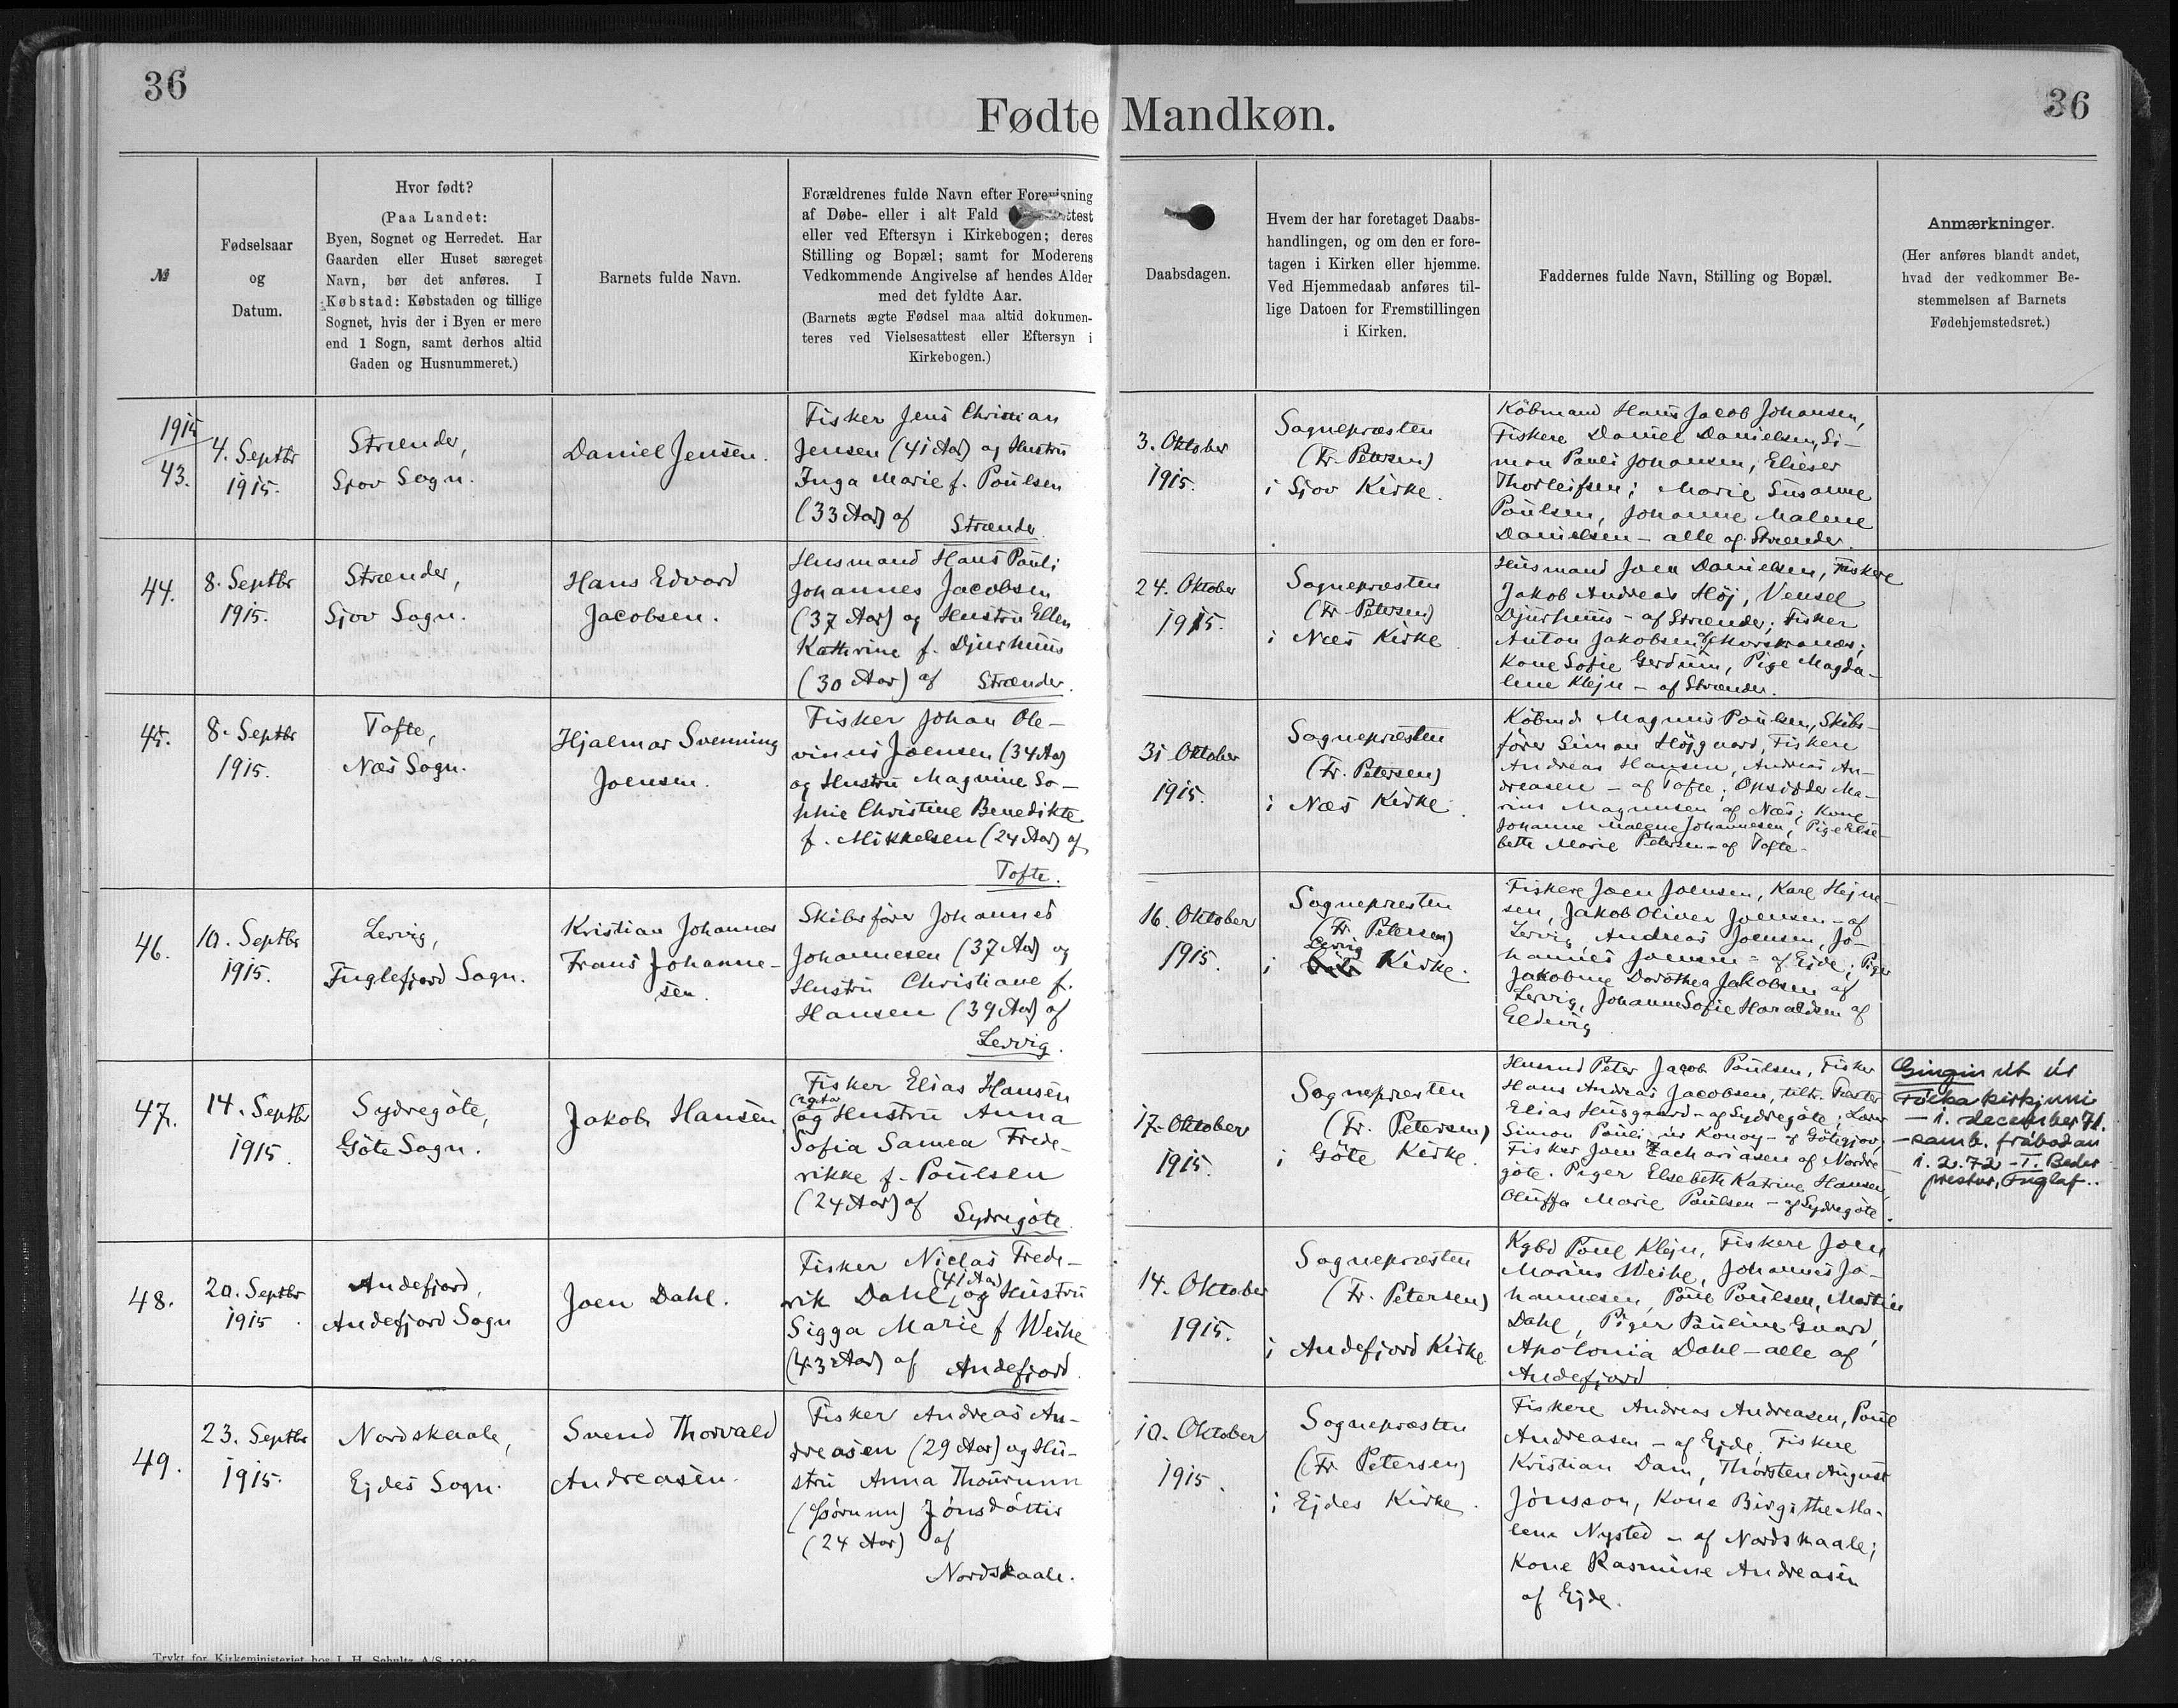 36
Fødte Mandkøn.
36
№
Fødselsaar
og
Datum.
Hvor født?
(Paa Landet:
Byen, Sognet og Herredet. Har
Gaarden eller Huset særeget
Navn, bør det anføres. I
Købstad: Købstaden og tillige
Sognet, hvis der i Byen er mere
end 1 Sogn, samt derhos altid
Gaden og Husnummeret.)
Barnets fulde Navn.
Forældrenes fulde Navn efter Forevisning
af Døbe- eller i alt Fald
eller ved Eftersyn i Kirkebogen; deres
Stilling og Bopæl; samt for Moderens
Vedkommende Angivelse af hendes Alder
med det fyldte Aar.
(Barnets ægte Fødsel maa altid dokumen-
teres ved Vielsesattest eller Eftersyn i
Kirkebogen.)
Daabsdagen.
Hvem der har foretaget Daabs-
handlingen, og om den er fore-
tagen i Kirken eller hjemme.
Ved Hjemmedaab anføres til-
lige Datoen for Fremstillingen
i Kirken.
Faddernes fulde Navn, Stilling og Bopæl.
Anmærkninger.
(Her anføres blandt andet,
hvad der vedkommer Be-
stemmelsen af Barnets
Fødehjemstedsret.)
1915
43.
4. Septbr
1915.
Strænder,
Sjov Sogn.
Daniel Jensen.
Fisker Jens Christian
Jensen (41 Aar) og Hustru
Inga Marie f. Poulsen
(33 Aar) af
Strænder
3. Oktober
1915.
Sognepræsten
(Fr. Petersen)
i Sjov Kirke.
Købmand Hans Jacob Johansen,
Fiskere Daniel Danielsen, Si-
mon Pauli Johansen, Elieser
Thorleifsen; Marie Susanne
Poulsen, Johanne Malene
Danielsen – alle af Strænder.
44.
8. Septbr
1915.
Strænder,
Sjov Sogn.
Hans Edvard
Jacobsen.
Husmand Hans Pauli
Johannes Jacobsen
(37 Aar) og Hustru Ellen
Kathrine f. Djurhuus
(30 Aar) af Strænder.
24. Oktober
1915.
Sognepræsten
(Fr. Petersen)
i Næs Kirke.
Husmand Joen Danielsen, Fiskere
Jakob Andreas Höj, Vensel
Djurhuus – af Strænder; Fisker
Anton Jakobsen af Morskranæs;
Kone Sofie Gerdum, Pige Magda-
lene Klejn – af Strænder.
45.
8. Septbr
1915.
Tofte,
Næs Sogn.
Hjalmar Svenning
Joensen.
Fisker Johan Ole-
vinus Joensen (34 Aar)
og Hustru Magnine So-
phie Christine Benedikte
f. Mikkelsen (24 Aar) af
Tofte.
31 Oktober
1915.
Sognepræsten
(Fr. Petersen)
i Næs Kirke.
Købmd Magnus Poulsen, Skibs-
fører Simon Höjgaard, Fiskere
Andreas Hansen, Andreas An-
dreasen – af Tofte; Opsidder Ma-
rius Magnusen af Næs; Kone
Johanne Malene Johannesen, Pige Else-
beth Marie Petersen – af Tofte.
46.
10. Septbr
1915.
Lervig,
Fuglefjord Sogn.
Kristian Johannes
Frans Johanne-
sen.
Skibsfører Johannes
Johannesen (37 Aar) og
Hustru Christiane f.
Hansen (39 Aar) af
Lervig.
16. Oktober
1915.
Sognepræsten
(Fr. Petersen)
Lervig
i Kirke.
Fiskere Joen Joensen, Karl Hejne-
sen, Jakob Oliver Joensen – af
Lervig, Andreas Joensen, Jo-
hannes Joensen – af Ejde; Piger
Jakobine Dorothea Jakobsen af
Lervig, Johanne Sofie Haraldsen af
Eldevig
47.
14. Septbr
1915.
Sydregöte,
Göte Sogn.
Jakob Hansen
Fisker Elias Hansen
og Hustru Anna
Sofia Samea Frede-
rikke f. Poulsen
(24 Aar) af
Sydregöte.
17. Oktober
1915.
Sognepræsten
(Fr. Petersen)
i Göte Kirke.
Husmd Peter Jacob Poulsen, Fisker
Hans Andreas Jacobsen,
Elias Husgaard – af Sydregöte; Lærer
Simon Pauli úr Konoy – af Götegjov;
Fisker Joen Zachariasen af Nordre-
göte. Piger Elsebeth Katrine Hansen,
Oluffa Marie Poulsen – af Sydregöte.
Gingin út úr
Fólkakirkjuni
– 1. december 71.
– samb. fráboðan
1. 2. 72 – T.
prestur, Fuglaf..
48.
20. Septbr
1915.
Andefjord,
Andefjord Sogn
Joen Dahl.
Fisker Niclas Frede-
rik Dahl (41 Aar), og Hustru
Sigga Marie f Weihe
(43 Aar) af Andefjord.
14. Oktober
1915.
Sognepræsten
(Fr. Petersen)
i Andefjord Kirke
Kgbd Poul Klejn, Fiskere Joen
Marius Weihe, Johannes Jo-
hannesen, Poul Poulsen, Martin
Dahl, Piger Pauline Gaard,
Apolonia Dahl – alle af
Andefjord
49.
23. Septbr
1915.
Nordskaale,
Ejdes Sogn.
Svend Thorvald
Andreasen.
Fisker Andreas An-
dreasen (29 Aar) og Hu-
stru Anna Thourunn
(Þórunn) Jónsdóttir
(24 Aar) af
Nordskaale.
10. Oktober
1915.
Sognepræsten
(Fr Petersen)
i Ejdes Kirke.
Fiskere Andreas Andreasen, Poul
Andreasen – af Ejde; Fiskere
Kristian Dam, Thorsten August
Jónsson, Kone Birgithe Ma-
lene Nysted – af Nordskaale;
Kone Rasmine Andreasen
af Ejde.
Trykt for Kirkeministeriet hos J. H. Schultz A/S